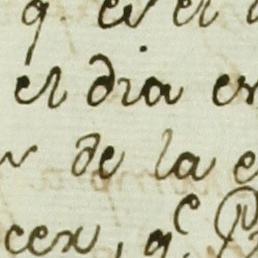 q. es el
el dia en
de la
cer, q.e